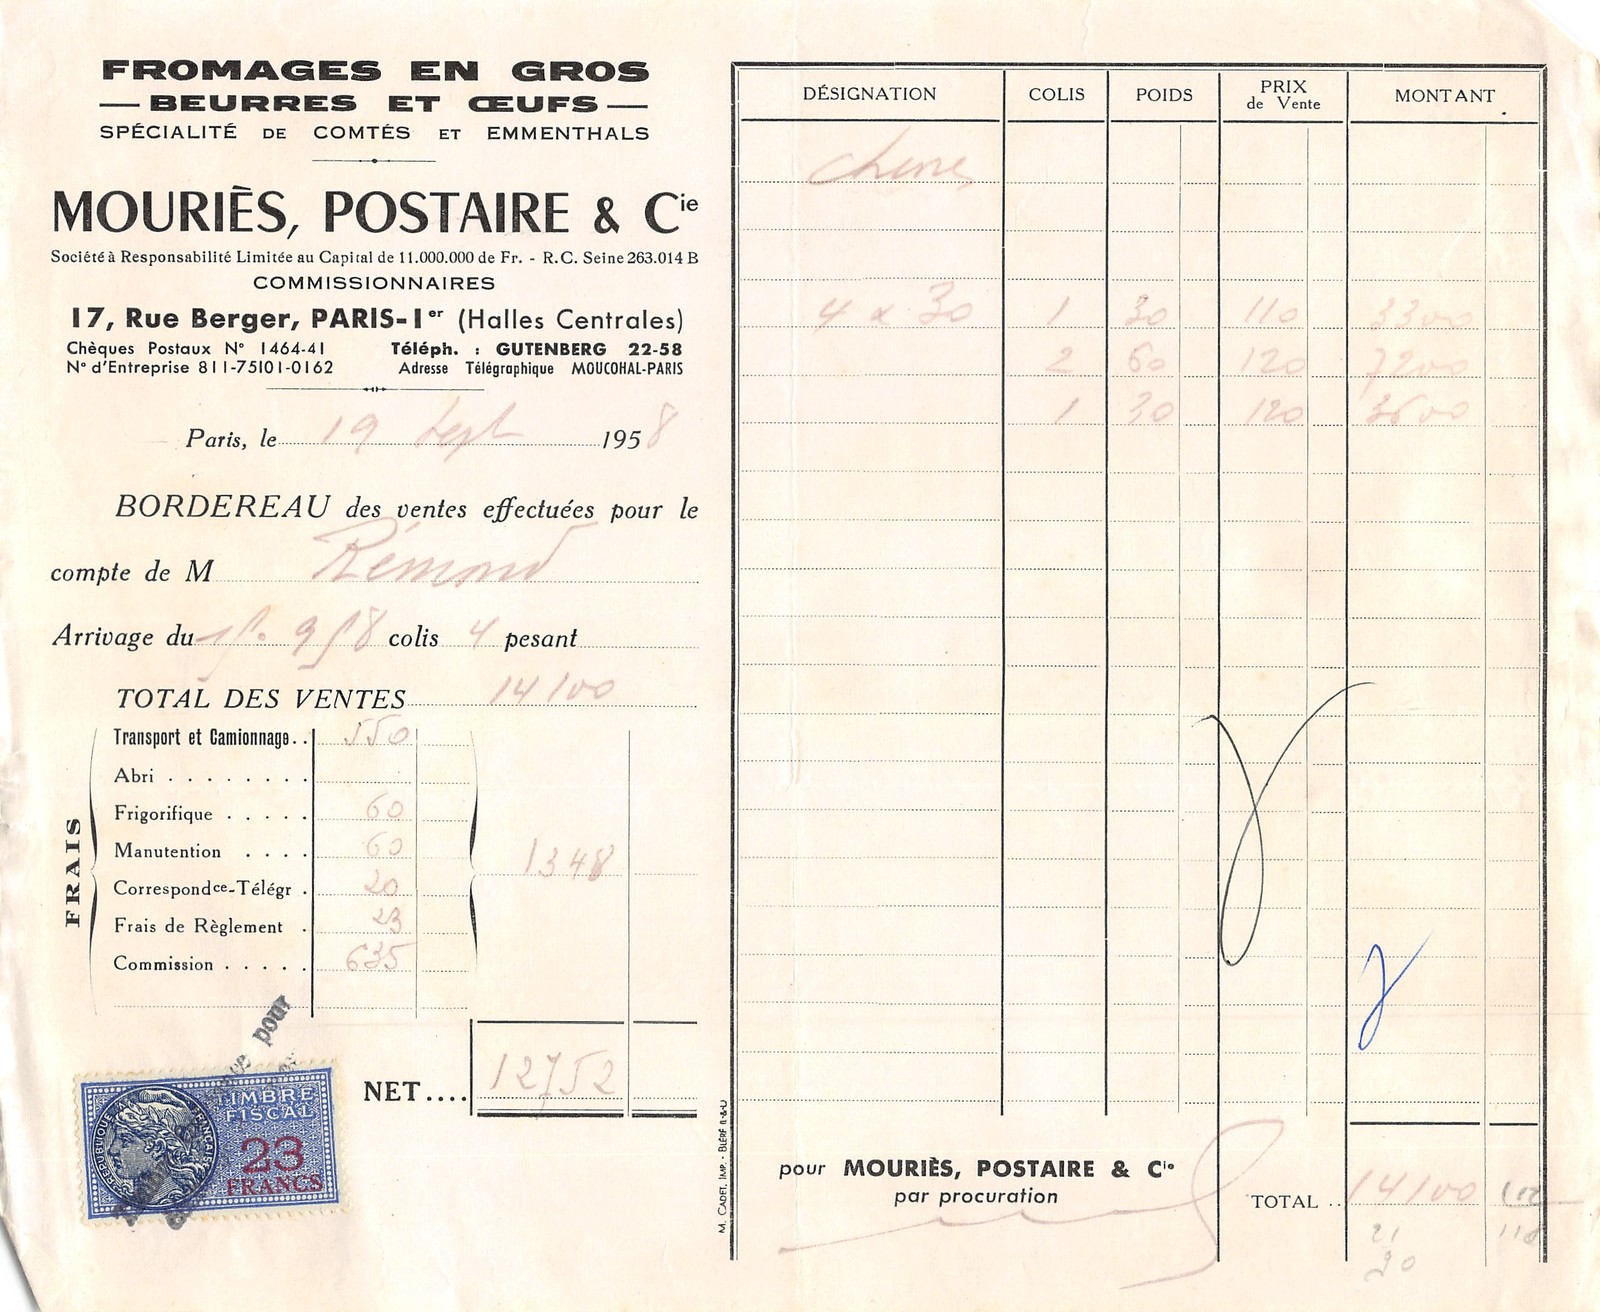 FROMAGES EN GROS
— BEURRES ET ŒUFS —
SPÉCIALITÉ DE COMTÉS ET EMMENTHALS
MOURIÈS, POSTAIRE & Cie
Société à Responsabilité Limitée au Capital de 11.000.000 de Fr. - R.C. Seine 263.014 B
COMMISSIONNAIRES
17, Rue Berger, PARIS-1er (Halles Centrales)
Chèques Postaux N° 1464-41 Téléph. : GUTENBERG 22-58
N° d'Entreprise 811-75101-0162 Adresse Télégraphique MOUCOHAL-PARIS
Paris, le 19 Sept 1958
BORDEREAU des ventes effectuées pour le
compte de M Rémond
Arrivage du 9/58 colis 4 pesant
TOTAL DES VENTES 14100
FRAIS
Transport et Camionnage.. 550
Abri . . . . . . . .
Frigorifique . . . . . 60
Manutention . . . . 60
Correspondce-Télégr . 20
Frais de Règlement . 23
Commission . . . . . 635
1348
NET.... 12752
pour
RÉPUBLIQUE FRANÇAISE
TIMBRE
FISCAL
23
FRANCS
M. CADET, IMP. - BLÉRÉ (I.-&-L)
DÉSIGNATION COLIS POIDS PRIX de Vente MONTANT
4 x 30 1 30 110 3300
2 60 120 7200
1 30 120 3600
pour MOURIÈS, POSTAIRE & Cie
par procuration
TOTAL .. 14100